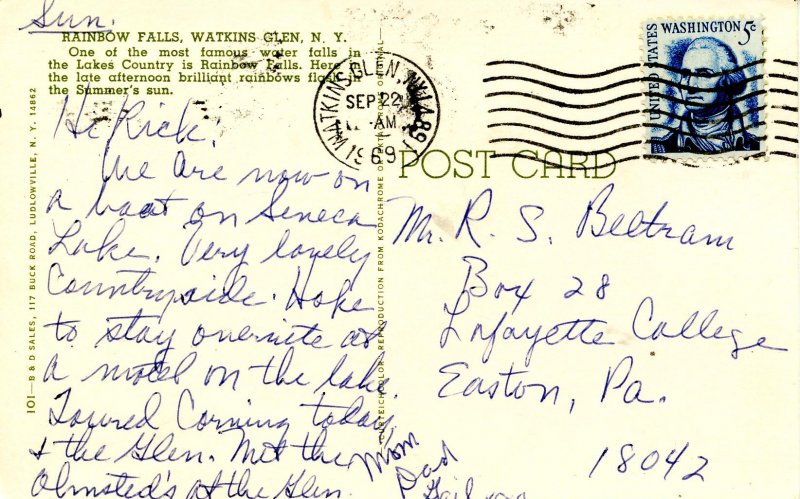 Sun.
RAINBOW FALLS, WATKINS GLEN, N. Y.
One of the most famous water falls in
the Lakes Country is Rainbow Falls. Here in
the late afternoon brilliant rainbows flash in
the Summer's sun.
Hi Rick,
We are now on
a boat on Seneca
Lake. Very lovely
Countryside. Hope
to stay overnite at
a motel on the lake.
Toured Corning today,
& the Glen. Met the
Olmsted's at the Glen.
Mom
Dad
Gail
101—B & D SALES, 117 BUCK ROAD, LUDLOWVILLE, N. Y. 14862
REPRODUCTION FROM KODACHROME OR EKTACHROME ORIGINAL
WATKINS GLEN, N.Y. 14891
SEP 22
AM
1969
UNITED STATES
WASHINGTON 5c
POST CARD
Mr. R. S. Beltram
Box 28
Lafayette College
Easton, Pa.
18042